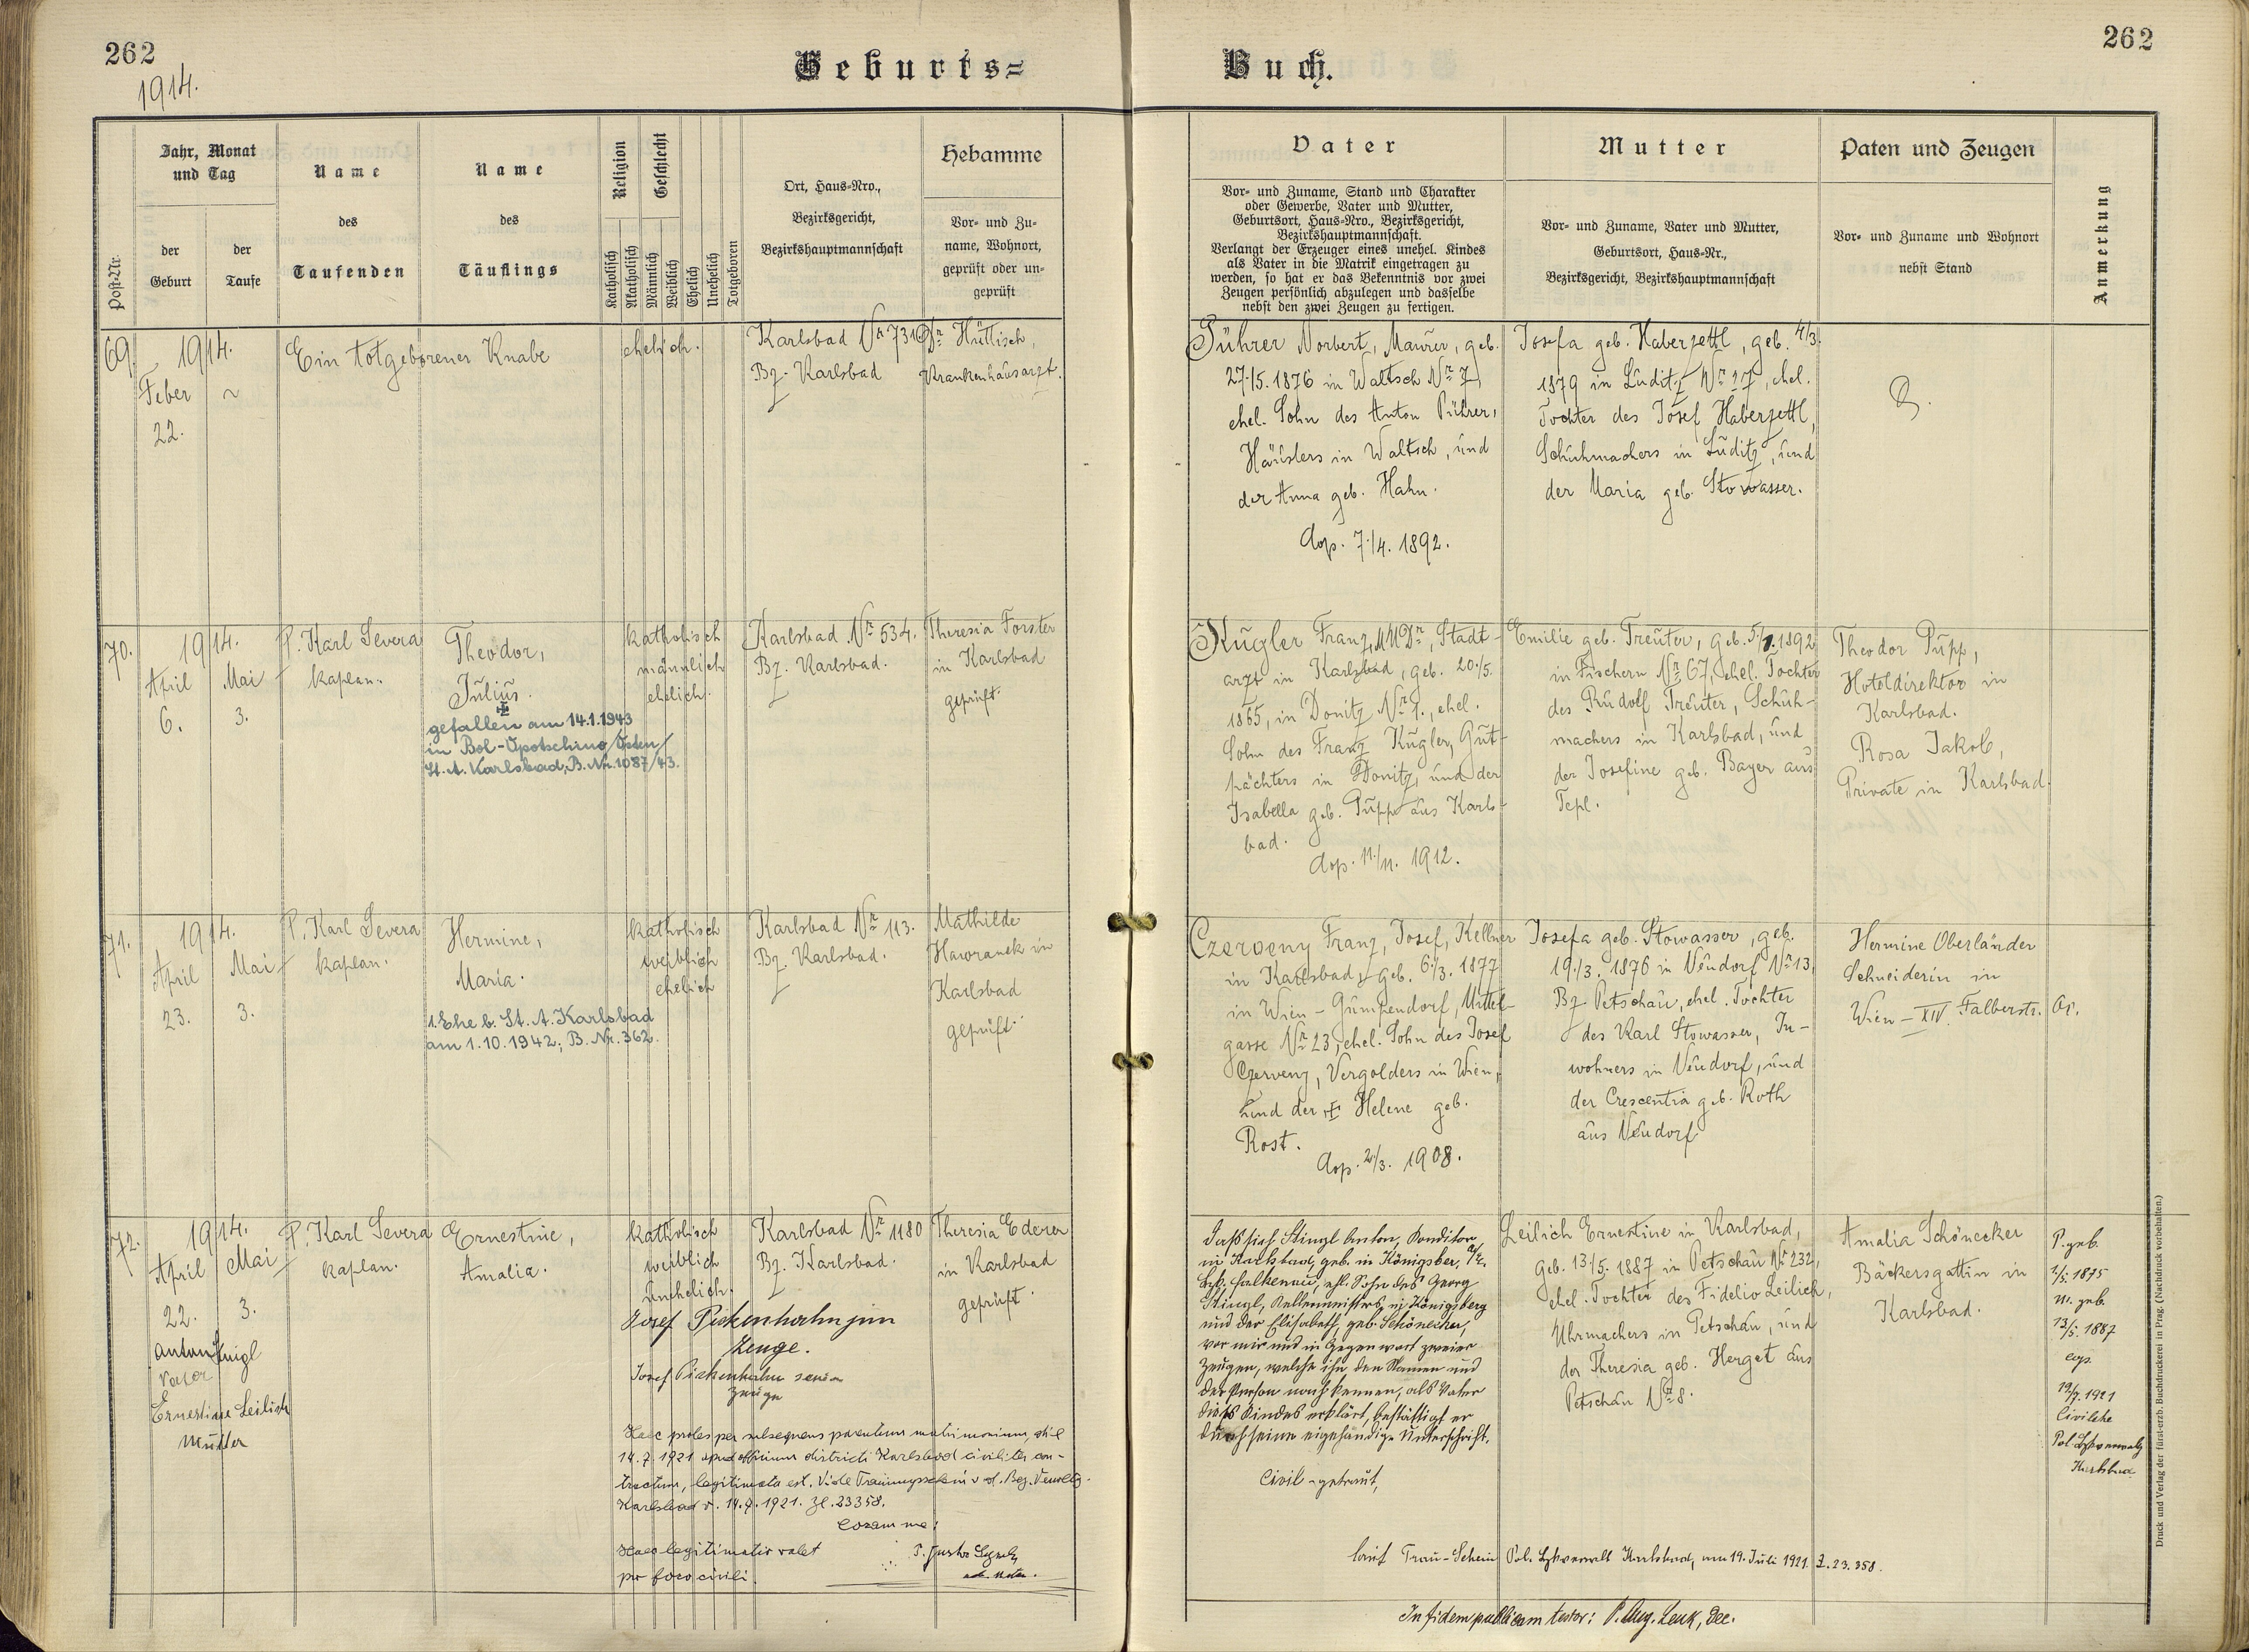 262
1914.
Geburts=
Jahr, Monat
und Tag
Name
Name
Religion
Geschlecht
Hebamme
Ort, Haus=Nro.,
des
des
Bezirksgericht,
Vor= und Zu=
der
der
name, Wohnort,
Bezirkshauptmannschaft
Post=Nr.
Geburt
Taufe
Taufenden
Täuflings
Katholisch
Akatholisch
Männlich
Weiblich
Ehelich
Unehelich
Totgeboren
geprüft oder un=
geprüft
69.
1914.
Feber
22.
~
Ein totgeborener Knabe
ehelich.
Karlsbad Nr 731
Bz. Karlsbad
Dr Hüttisch,
Krankenhausarzt.
70.
1914.
April
6.
Mai
3.
P. Karl Severa
kaplan.
Theodor,
Julius.
gefallen am 14.1.1943
in Bol-Opotschino/Osten/
St. A. Karlsbad, B. Nr. 1087/43.
katholisch
männlich
ehelich.
Karlsbad Nr 534.
Bz. Karlsbad.
Theresia Forster
in Karlsbad
geprüft.
71.
1914.
April
23.
Mai
3.
P. Karl Severa
kaplan.
Hermine,
Maria.
1. Ehe b. St. A. Karlsbad
am 1.10.1942; B. Nr. 362.
katholisch
weiblich
ehelich
Karlsbad Nr 113.
Bz. Karlsbad.
Mathilde
Hawranek in
Karlsbad
geprüft.
72.
1914.
April
22.
Mai
3.
Vater
Ernestine Leilich
Mutter
P. Karl Severa
kaplan.
Ernestine,
Amalia.
katholisch
weiblich
unehelich.
Karlsbad Nr 1180
Bz. Karlsbad.
Theresia Ederer
in Karlsbad
geprüft.
Josef Pickenhahn jun
Zeuge.
Josef Pickenhahn senior
Zeuge
Haec proles per subsequens parentum matrimonium, die
14.7.1921 apud officium districti Karlsbad civiliter con-
tractum, legitimata est. Vide Trauungsschein v. d. Bez. Verwltg.
Karlsbad v. 14.7.1921. Zl. 23358.
Coram me:
Haec legitimatio valet
pro foro civili.
262
Buch.
Vater
Mutter
Paten und Zeugen
Anmerkung
Vor= und Zuname, Stand und Charakter
oder Gewerbe, Vater und Mutter,
Geburtsort, Haus=Nro., Bezirksgericht,
Bezirkshauptmannschaft.
Verlangt der Erzeuger eines unehel. Kindes
als Vater in die Matrik eingetragen zu
werden, so hat er das Bekenntnis vor zwei
Zeugen persönlich abzulegen und dasselbe
nebst den zwei Zeugen zu fertigen.
Vor= und Zuname, Vater und Mutter,
Geburtsort, Haus=Nr.,
Bezirksgericht, Bezirkshauptmannschaft
Vor= und Zuname und Wohnort
nebst Stand
Pührer Norbert, Maurer, geb.
27./5. 1876 in Waltsch Nr 7,
ehel. Sohn des Anton Pührer,
Häuslers in Waltsch, und
der Anna geb. Hahn.
Cop. 7./4. 1892.
Josefa geb. Haberzettl, geb. 4/3.
1879 in Luditz Nr 27, ehel.
Tochter des Josef Haberzettl,
Schuhmachers in Luditz, und
der Maria geb. Stowasser.
Kugler Franz, MUDr, Stadt-
arzt in Karlsbad, geb. 20./5.
1865, in Donitz Nr 1., ehel.
Sohn des Franz Kugler, Gut-
pächters in Donitz, und der
Isabella geb. Pupp aus Karls-
bad.
Cop. 11./11. 1912.
Emilie geb. Treuter, geb. 5./1. 1892
in Fischern Nr 67, ehel. Tochter
des Rudolf Treuter, Schuh-
machers in Karlsbad, und
der Josefine geb. Bayer aus
Tepl.
Theodor Pupp,
Hoteldirektor in
Karlsbad.
Rosa Jakob,
Private in Karlsbad.
Czerveny Franz, Josef, Kellner
in Karlsbad, geb. 6./3. 1877
in Wien - Gumpendorf, Mittel-
gasse Nr 23, ehel. Sohn des Josef
Czerveny, Vergolders in Wien,
und der Helene geb.
Rost.
Cop. 2/3. 1908.
Josefa geb. Stowasser, geb.
19./3. 1876 in Neudorf Nr 13,
Bz. Petschau, ehel. Tochter
des Karl Stowasser, In-
wohners in Neudorf, und
der Crescentia geb. Roth
aus Neudorf
Hermine Oberländer
Schneiderin in
Wien - XIV. Falberstr. 65.
Daß sich Stingl Anton, Konditor
in Karlsbad, geb. in Königsberg a/E.
Bzk. Falkenau, ehl. Sohn des Georg
Stingl, Kellermeisters in Königsberg
und der Elisabeth, geb. Schönecker,
vor mir und in Gegenwart zweier
Zeugen, welche ihn dem Namen und
der Person nach kennen, als Vater
dieses Kindes erklärt, bestättigt er
durch seine eigehändige Unterschrift.
Civil - getraut,
Leilich Ernestine in Karlsbad,
geb. 13./5. 1887 in Petschau Nr 232,
ehel. Tochter des Fidelio Leilich,
Uhrmachers in Petschau, und
der Theresia geb. Herget aus
Petschau Nr 8.
Amalia Schönecker
Bäckersgattin in
Karlsbad.
P. geb.
1/5. 1875
M. geb.
13/5. 1887
cop.
19/7. 1921
Civilehe
Pol. Bzkverwaltg
Karlsbad
laut Trau-Schein Pol. Bzkverwalt Karlsbad, am 19. Juli 1921. Z. 23.358.
In fidem publicam testor: P. Aug. Lenk, Dec.
Druck und Verlag der fürst-erzb. Buchdruckerei in Prag. (Nachdruck vorbehalten.)